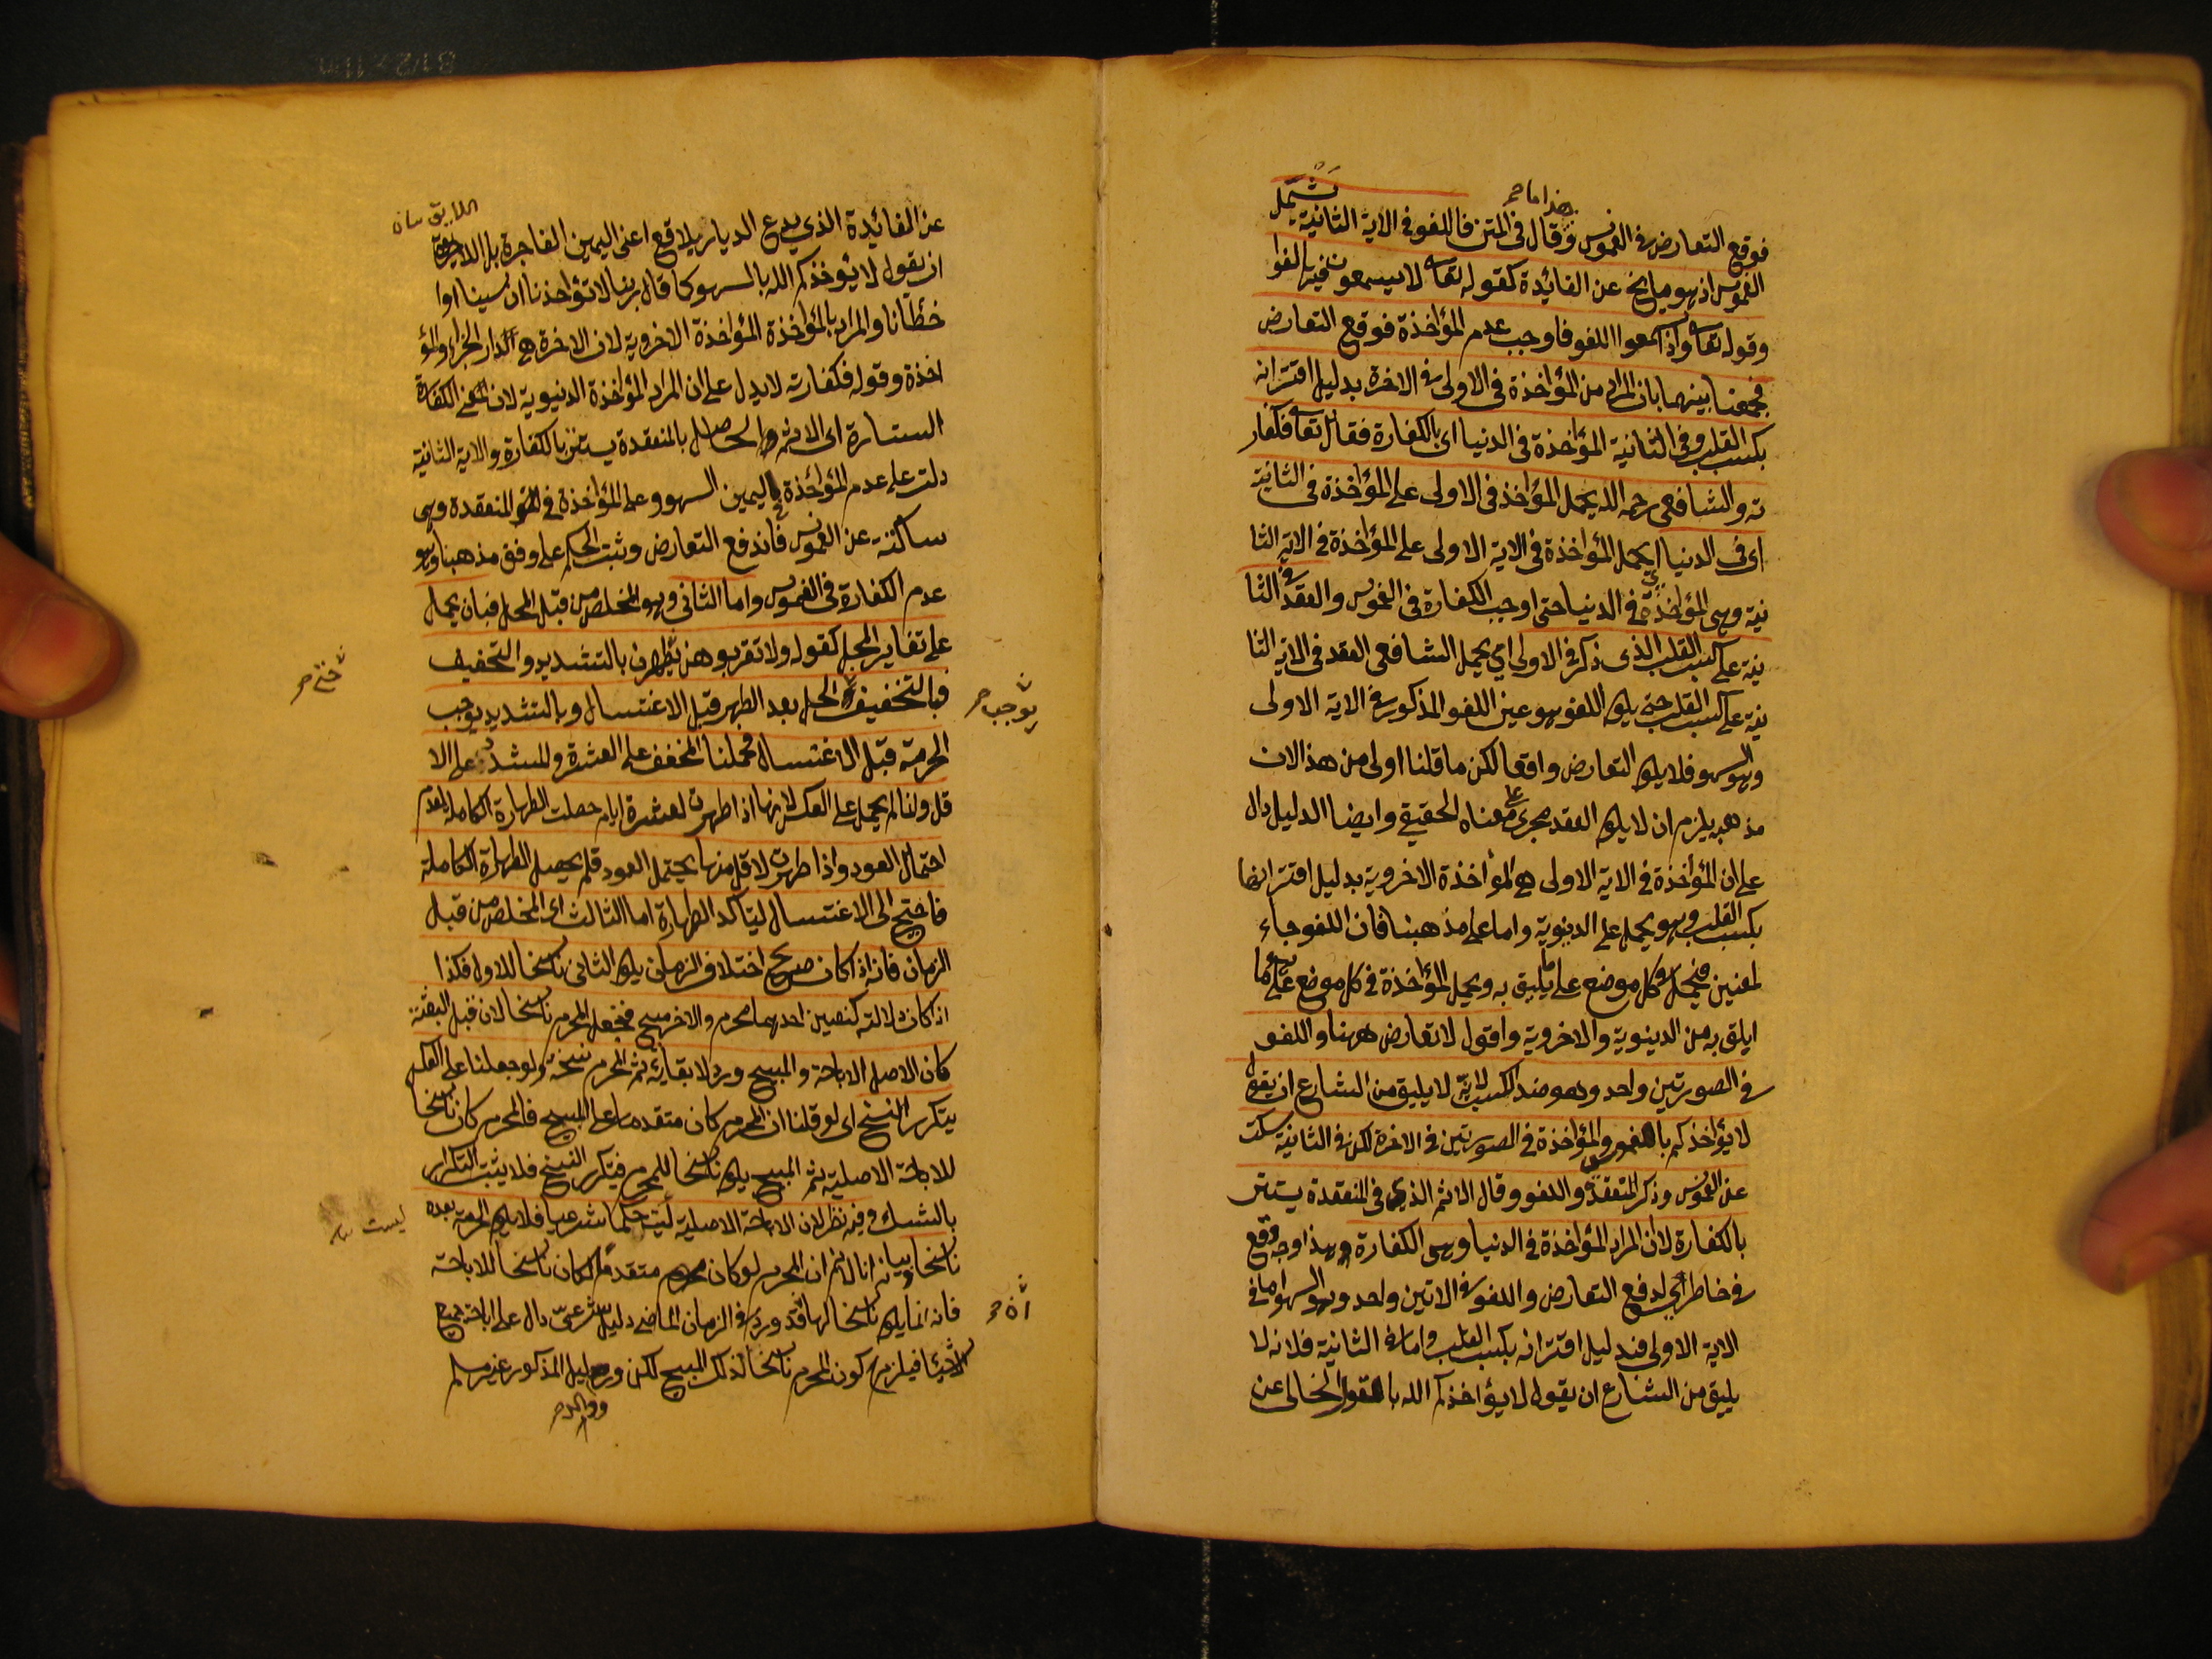 هذا ما صح
فوقع التعارض في الغموس وقال في المتن فاللغو في الآية الثانية تشمل
الغموس اذ هو ما يخ عن الفائدة كقوله تعا لا يسمعون فيها لغوا
وقوله تعا واذا سمعوا اللغو فاوجب عدم المؤاخذة فوقع التعارض
فجمعنا بينهما بان المراد من المؤاخذة في الاولى في الاخرة بدليل اقترانه
بكسب القلب وفي الثانية المؤاخذة في الدنيا اى بالكفارة فقال تعا فكفار
ته والشافعى رحمه الله يحمل المؤاخذ في الاولى على المؤاخذة في الثانية
اى في الدنيا اى يحمل المؤاخذة في الاية الاولى على المؤاخذة في الاية الثا
نية وهى المؤاخذة في الدنيا حتى اوجب الكفارة في الغموس والعقد في الثا
نية على كسب القلب الذى ذكر في الاولى اى يحمل الشافعى العقد في الاية الثا
نية على كسب القلب حتى يكو اللغو هو عين اللغو المذكور في الاية الاولى
وهو السهو فلا يكو التعارض واقعا لكن ما قلنا اولى من هذا لان
مذهبه يلزم ان لا يكو العقد مجرى على معناه الحقيقي وايضا الدليل دال
على ان المؤاخذة في الاية الاولى هي المؤاخذة الاخروية بدليل اقترانها
بكسب القلب وهو يحمل على الدنيوية واما على مذهبنا فان اللغو جاء
لمعنيين فيحمل في كل موضع على ما يليق به ويحمل المؤاخذة في كل موضع على ما
ايلق به من الدينوية والاخروية واقول لا تعارض ههنا واللغو
في الصورتين واحد وهو ضد الكسب لانه لا يليق من الشارع ان يقول
لا يؤاخذكم بالغموس والمؤاخذة في الصورتين في الاخرة لكن في الثانية سكت
عن الغموس وذكر المنعقدة واللغو وقال الاثم الذى في المنعقدة يستتر
بالكفارة لا ان المراد المؤاخذة في الدنيا وهى الكفارة وهذا وجه وقع
في خاطرى لدفع التعارض واللغو في الايتين واحد وهو السهو اما في
الاية الاولى فبدليل اقترانه بكسب القلب واما في الثانية فلانه لا
يليق من الشارع ان يقول لا يؤاخذكم الله بالقول الخالى عن
عن الفائيدة الذى يدع الديار بلاقع اعنى اليمين الفاجرة بل اللايق
ان يقول لا يؤخذكم الله بالسهو كما قال ربنا لا تؤاخذنا ان نسينا او ا
خطأنا والمراد بالمؤاخذة المؤاخذة الاخروية لان الاخرة هي الدار الجزاء والمؤ
اخذة وقوله فكفارته لا يدل على ان المراد المؤاخذة الدنيوية لان معنى الكفارة
الستارة اى الاثم الحاصل بالمنعقدة يستتر بالكفارة والاية الثانية
دلت على عدم المؤاخذة باليمين السهو وعلى المؤاخذة في المنعقدة وهى
ساكتة عن الغموس فاندفع التعارض وثبت الحكم على وفق مذهبنا وهو
عدم الكفارة في الغموس واما الثاني وهو المخلص من قبل المحل فبان يحمل
على تغاير المحل كقوله ولا تقربوهن حتى يطهرن بالتشديد والتخفيف
حتى صح
فبالتخفيف الحل بعد الطهر قبل الاغتسال وبالتشديد يوجب
يوجب صح
الحرمة قبل الاغتسال فحملنا المخفف على العشرة والمشدد على الا
قل ولنا لم يحمل على العكس لانها اذا طهرت لعشرة ايام حصلت الطهارة الكاملة لعدم
احتمال العود واذا طهرت لاقل منها يحتمل العود فلم يحصل الطهارة الكاملة
فاحتج الى الاغتسال ليتأكد الطهارة اما الثالث اى المخلص من قبل
الزمان فانه اذا كان صريح اختلاف الزمان يكو الثانى ناسخا للاول فكذا
اذ كان دلالته كنصيين احدهما محرم والاخر مبيح فنجعل المحرم ناسخا لان قبل البعثة
كان الاصل الاباحة والمبيح ورد لابقائه ثم المحرم نسخه ولو جعلنا على العكس
يتكرر النسخ اى لو قلنا ان المحرم كان متقدما على المبيح فالمحرم كان ناسخا
للاباحة الاصلية ثم المبيح يكو ناسخا للمحرم فيتكرر النسخ فلا يثبت التكرار
بالشك وفيه نظر لان الاباحة الاصلية ليست حكما شرعيا فلا يكو الحرمة بعده
ليست
ناسخا وبيانه انا لانم ان المحرم لو كان متقدما لكان ناسخا للاباحة
فانه انما يكو ناسخا لها قد ورد في الزمان الماضى دليل شرعى دال على اباحة جميع
الاشياء فيلزم كون المحرم ناسخا لذلك المبيح لكن ورود الدليل المذكور غير مسلم